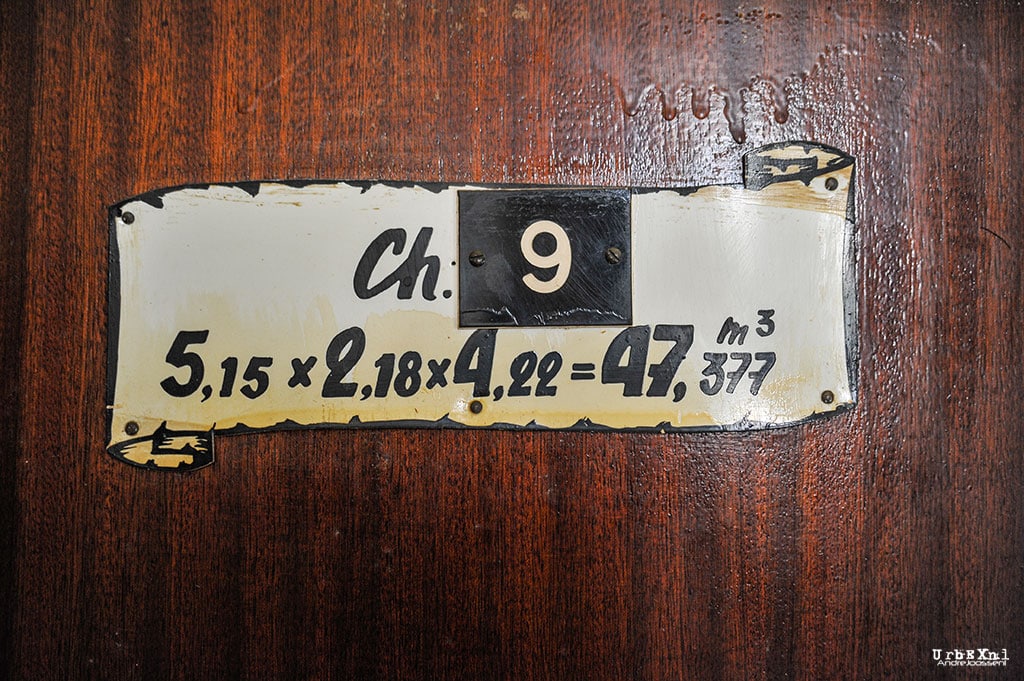 Ch. 9
5,15 x 2,18 x 4,22 = 47,377 m³
UrbEXnl
AndreJoosseni